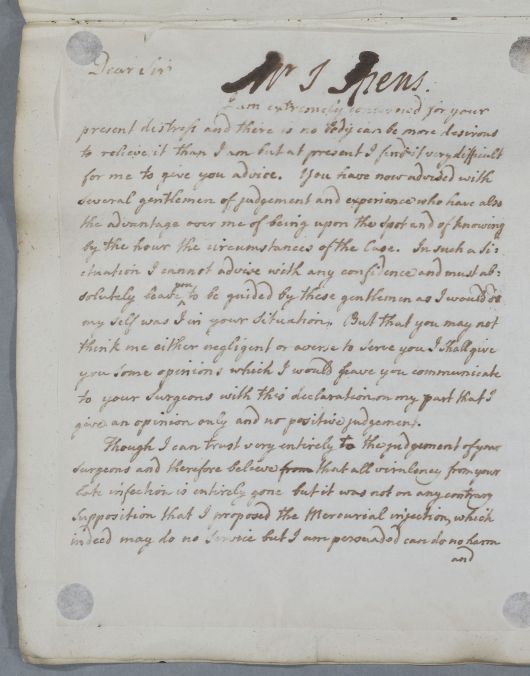 Dear Sir
Mr J Spens.
I am extremely concerned for your
present distress and there is no body can be more desirous
to relieve it than I am but at present I find it very difficult
for me to give you advice. You have now advised with
several gentlemen of judgement and experience who have also
the advantage over me of being upon the spot and of knowing
by the hour the circumstances of the Case. In such a Si:
:tuation I cannot advise with any confidence and must ab:
:solutely leave you to be guided by these gentlemen as I would be
my self was I in your Situation. But that you may not
think me either negligent or averse to serve you I shall give
you some opinions which I would leave you communicate
to your Surgeons with this declaration on my part that I
give an opinion only and no positive judgement.
Though I can trust very entirely to the judgement of your
Surgeons and therefore believe from that all virulency from your
late infection is entirely gone but it was not on any contrary
Supposition that I proposed the Mercurial injection, which
indeed may do no Service but I am persuaded can do no harm
and